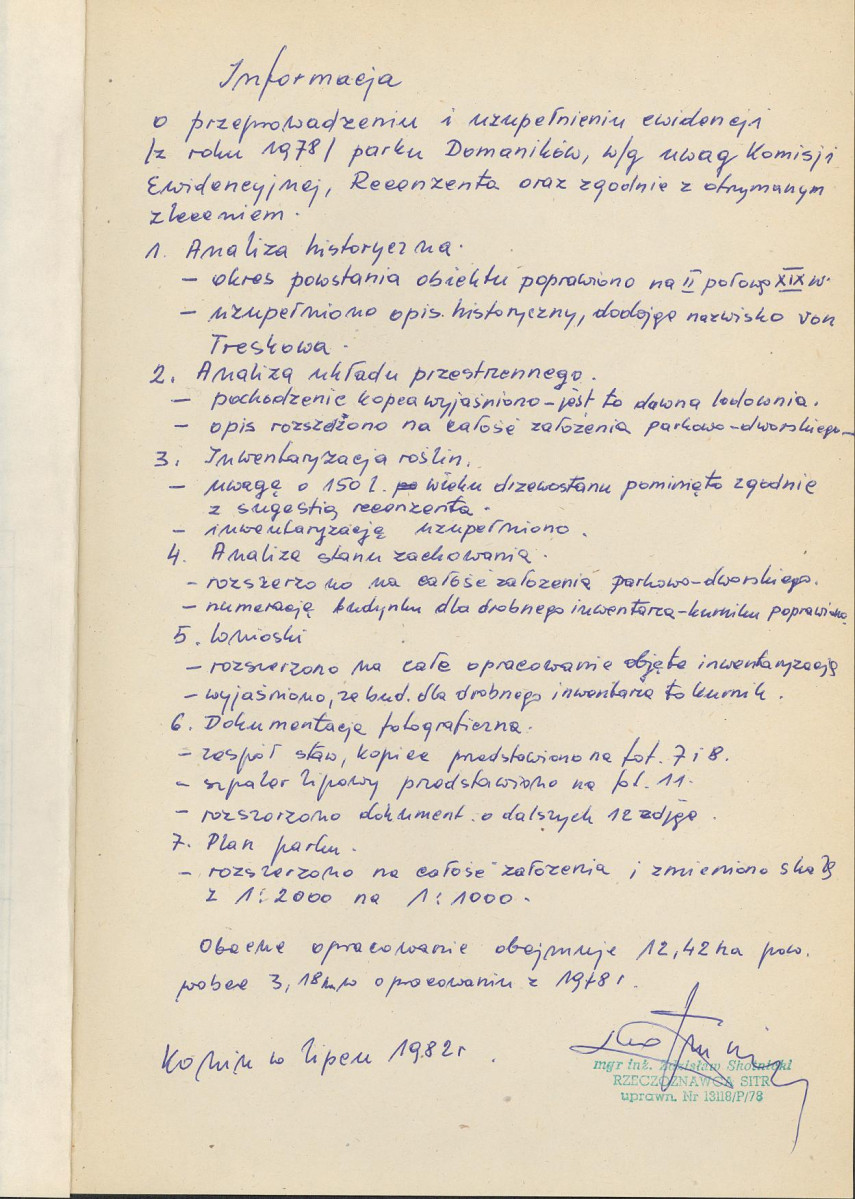 Informacja
o przeprowadzeniu i uzupełnieniu ewidencji
/z roku 1978/ parku Domaników, w/g uwag Komisji
Ewidencyjnej, Recenzenta oraz zgodnie z otrzymanym
zleceniem.
1. Analiza historyczna.
- okres powstania obiektu poprawiono na II połowę XIX w.
- uzupełniono opis historyczny, dodając nazwisko von
Treskowa.
2. Analiza układu przestrzennego.
- pochodzenie kopca wyjaśniono - jest to dawna lodownia.
- opis rozszerzono na całość założenia parkowo-dworskiego.
3. Inwentaryzacja roślin.
- uwagę o 150 l. wieku drzewostanu pominięto zgodnie
z sugestią recenzenta.
- inwentaryzację uzupełniono.
4. Analiza stanu zachowania.
- rozszerzono na całość założenia parkowo-dworskiego.
- numerację budynku dla drobnego inwentarza-kurniku poprawiono
5. Wnioski
- rozszerzono na całe opracowanie objęte inwentaryzacją
- wyjaśniono, że bud. dla drobnego inwentarza to kurnik.
6. Dokumentacja fotograficzna.
- zespół staw, kopiec przedstawiono na fot. 7 i 8.
- szpaler lipowy przedstawiono na fot. 11.
- rozszerzono dokument. o dalszych 12 zdjęć.
7. Plan parku.
- rozszerzono na całość założenia i zmieniono skalę
z 1:2000 na 1:1000.
Obecne opracowanie obejmuje 12,42 ha pow.
wobec 3,18 ha w opracowaniu z 1978 r.
Konin w lipcu 1982 r.
mgr inż. Zdzisław Skotnicki
RZECZOZNAWCA SITR
uprawn. Nr 13118/P/78